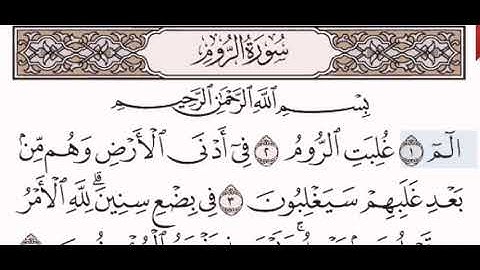 سُورَةُ الرُّومِ
بِسْمِ اللَّهِ الرَّحْمَٰنِ الرَّحِيمِ
الٓمٓ ١ غُلِبَتِ الرُّومُ ٢ فِىٓ أَدْنَى الْأَرْضِ وَهُم مِّنۢ
بَعْدِ غَلَبِهِمْ سَيَغْلِبُونَ ٣ فِى بِضْعِ سِنِينَ ۗ لِلَّهِ الْأَمْرُ